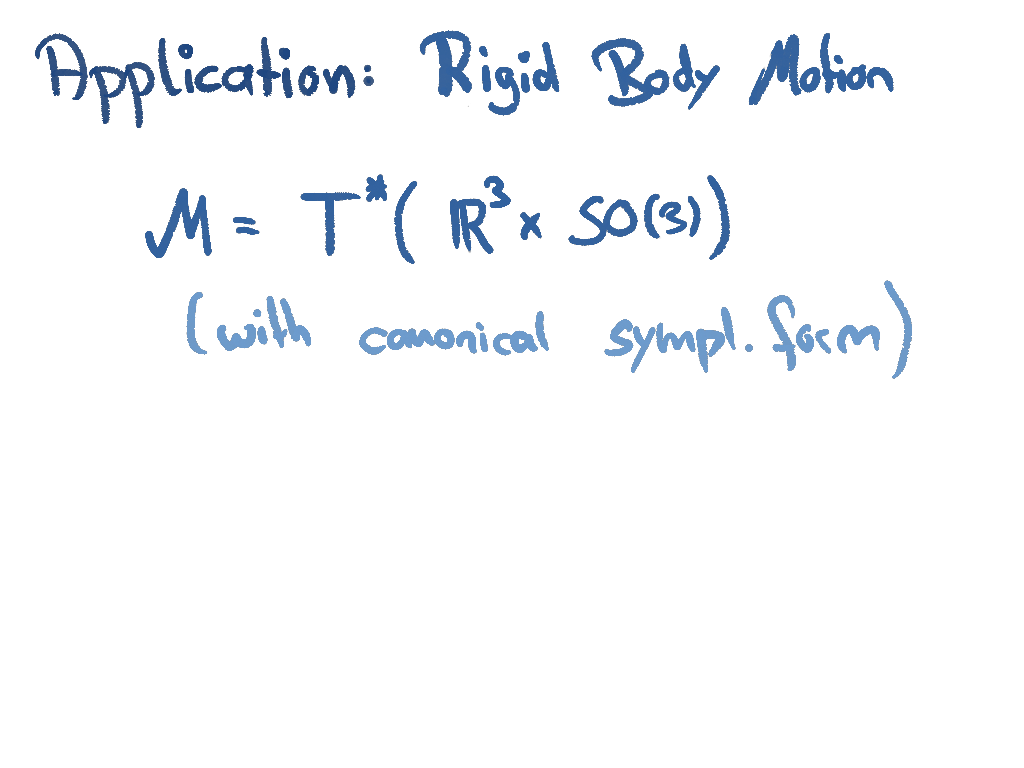 Application: Rigid Body Motion
M = T*( ℝ³ × SO(3) )
(with canonical sympl. form)